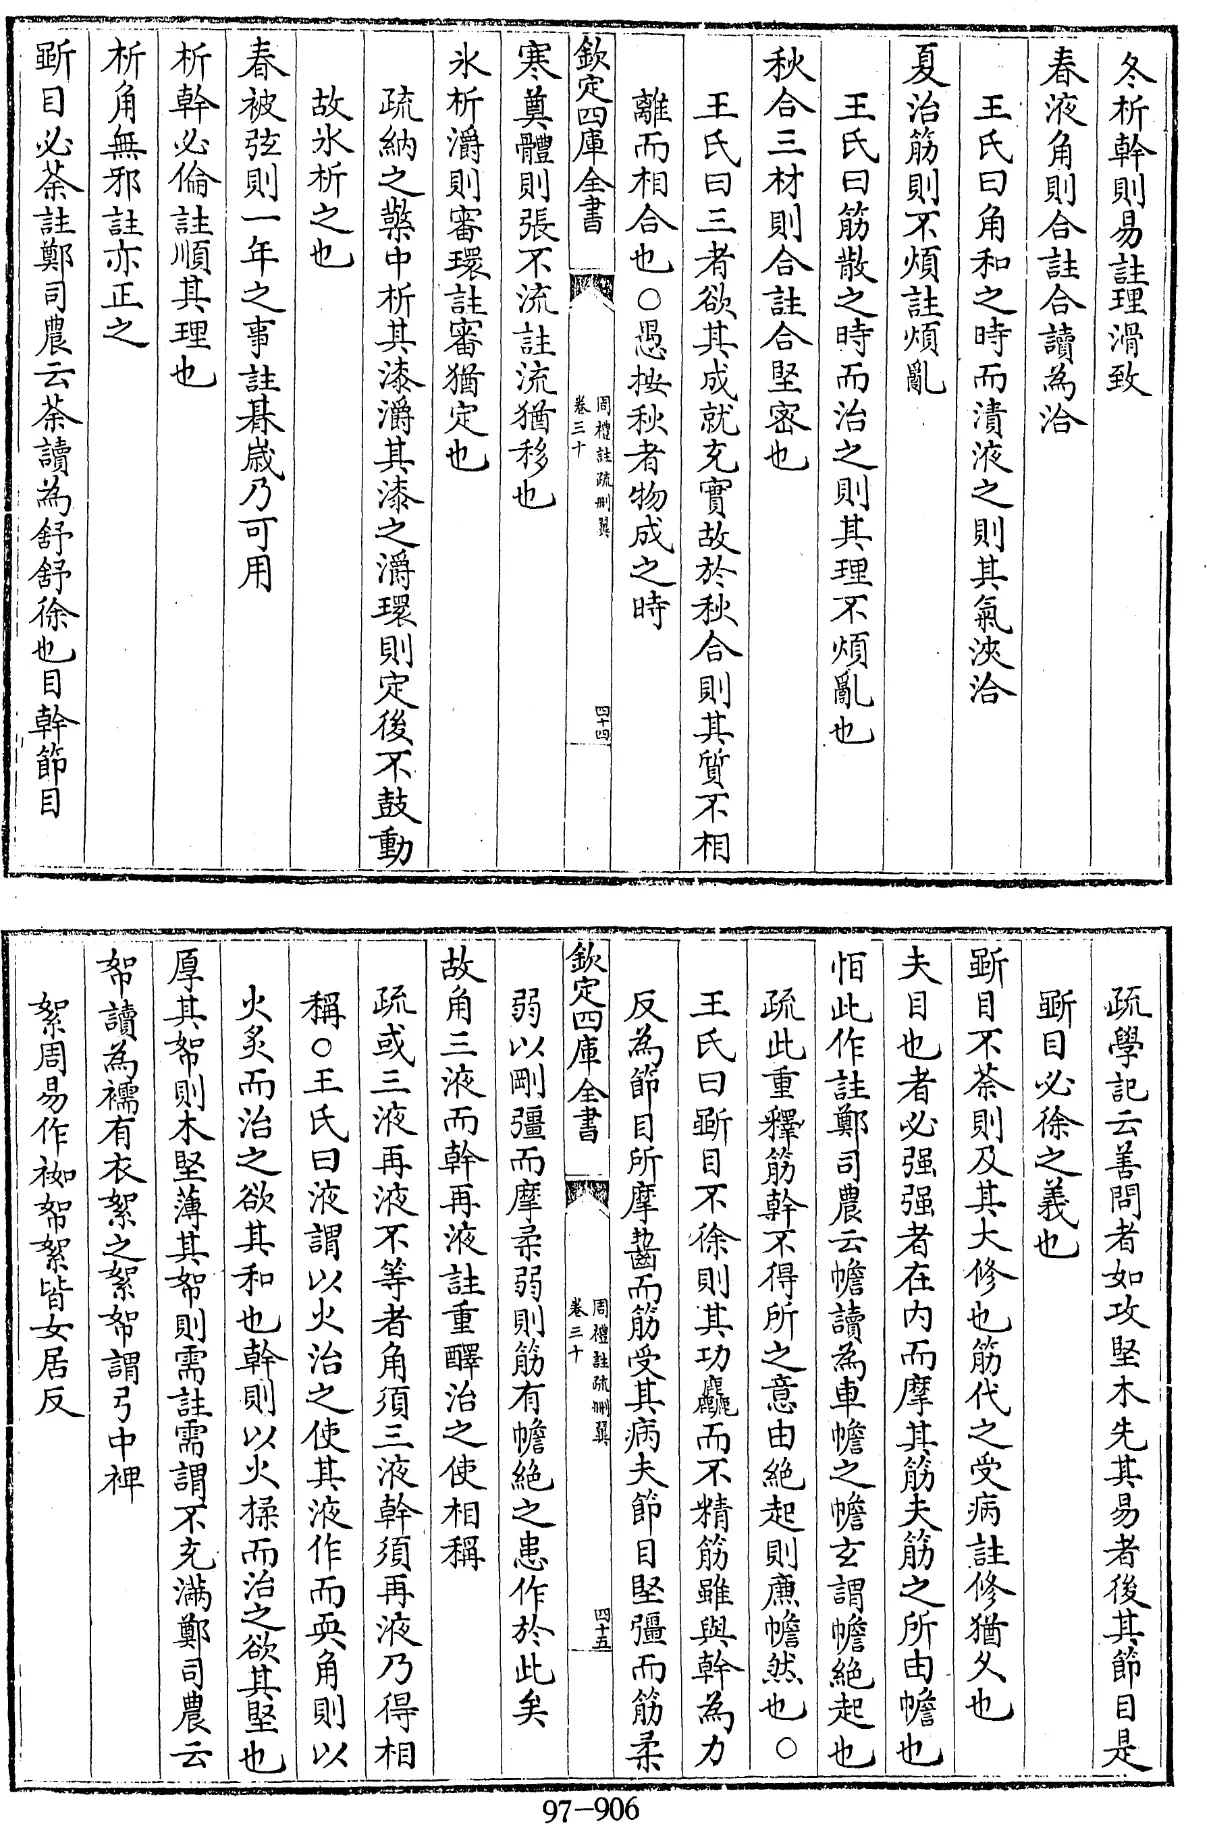 冬析幹則易註理滑致
春液角則合註合讀為洽
王氏曰角和之時而漬液之則其氣浹洽
夏治筋則不煩註煩亂
王氏曰筋散之時而治之則其理不煩亂也
秋合三材則合註合堅密也
王氏曰三者欲其成就充實故於秋合則其質不相
離而相合也○愚按秋者物成之時
欽定四庫全書
周禮註疏刪翼
卷三十
四十四
寒奠體則張不流註流猶移也
氷析灂則審環註審猶定也
疏納之檠中析其漆灂其漆之灂環則定後不鼓動
故氷析之也
春被弦則一年之事註朞歲乃可用
析幹必倫註順其理也
析角無邪註亦正之
斲目必荼註鄭司農云荼讀為舒舒徐也目幹節目
疏學記云善問者如攻堅木先其易者後其節目是
斲目必徐之義也
斲目不荼則及其大修也筋代之受病註修猶久也
夫目也者必强强者在内而摩其筋夫筋之所由幨也
怕此作註鄭司農云幨讀為車幨之幨玄謂幨絕起也
疏此重釋筋幹不得所之意由絕起則廌幨然也○
王氏曰斲目不徐則其功麤而不精筋雖與幹為力
反為節目所摩齧而筋受其病夫節目堅彊而筋柔
欽定四庫全書
周禮註疏刪翼
卷三十
四十五
弱以剛彊而摩柔弱則筋有幨絕之患作於此矣
故角三液而幹再液註重醳治之使相稱
疏或三液再液不等者角須三液幹須再液乃得相
稱○王氏曰液謂以火治之使其液作而耎角則以
火炙而治之欲其和也幹則以火揉而治之欲其堅也
厚其帤則木堅薄其帤則需註需謂不充滿鄭司農云
帤讀為襦有衣絮之絮帤謂弓中裨
絮周易作袽帤絮皆女居反
97-906